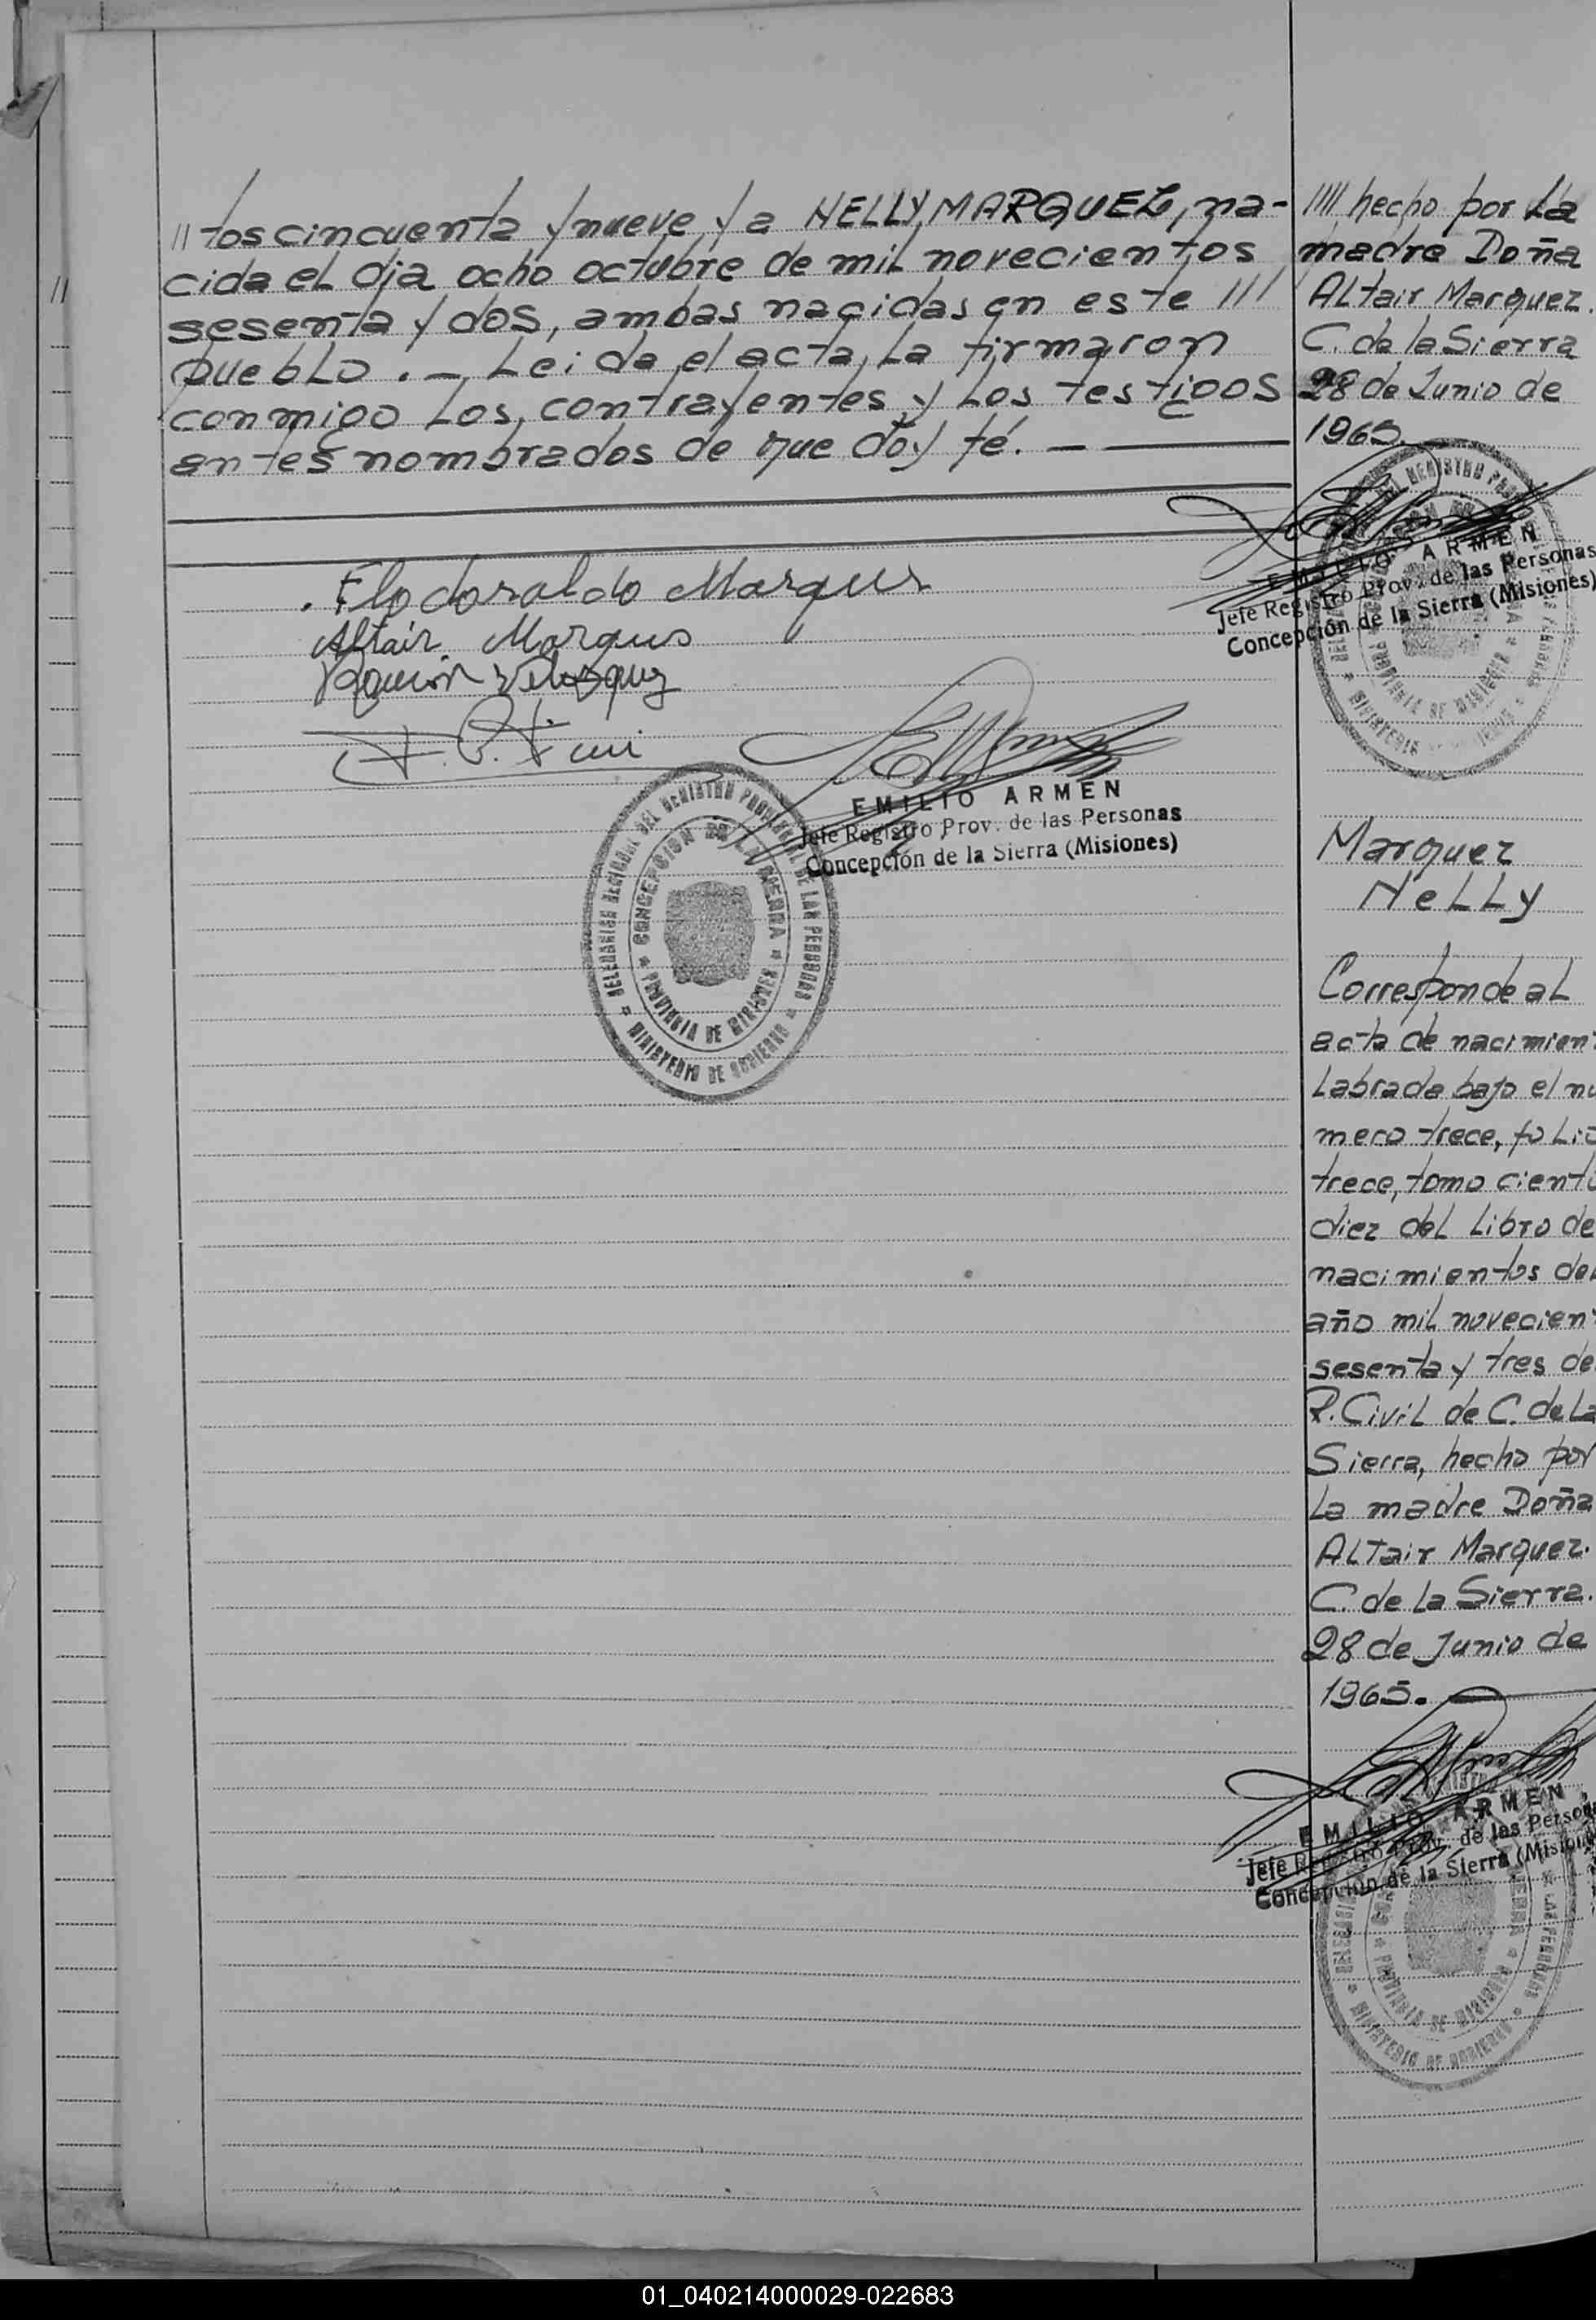 // tos cincuenta y nueve y a NELLY MARQUEZ, na-
cida el dia ocho octubre de mil novecientos
sesenta y dos, ambas nacidas en este ///
pueblo. — Leida el acta, la firmaron
conmigo los contrayentes y los testigos
antes nombrados de que doy fé. —
Marquez
Altair Marques
Ramón Velazquez
EMILIO ARMEN
Jefe Registro Prov. de las Personas
Concepción de la Sierra (Misiones)
DELEGACION DEL REGISTRO PROVINCIAL DE LAS PERSONAS
CONCEPCION DE LA SIERRA
PROVINCIA DE MISIONES
MINISTERIO DE GOBIERNO
//// hecho por La
madre Doña
Altair Marquez.
C. de la Sierra
28 de Junio de
1965.
EMILIO ARMEN
Jefe Registro Prov. de las Personas
Concepción de la Sierra (Misiones)
Marquez
Nelly
Corresponde al
acta de nacimien
Labrada bajo el nu
mero trece, folio
trece, tomo ciento
diez del Libro de
nacimientos del
año mil novecien
sesenta y tres de
R. Civil de C. de La
Sierra, hecho por
La madre Doña
Altair Marquez.
C. de La Sierra.
28 de Junio de
1965.
EMILIO ARMEN
Jefe Registro Prov. de las Person
Concepción de la Sierra (Mision
01_040214000029-022683